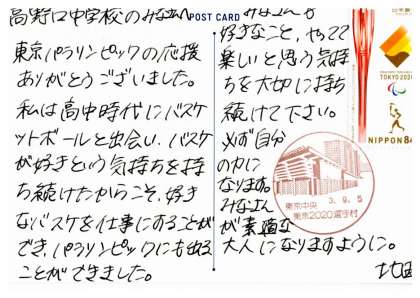 高野口中学校のみなさんへ
POST CARD
東京パラリンピックの応援
ありがとうございました。
私は高中時代にバスケ
ットボールと出会い、バスケ
が好きという気持ちを持
ち続けたからこそ、好き
なバスケを仕事にすることが
でき、パラリンピックにも出る
ことができました。
みなさんも
好きなこと、やってて
楽しいと思う気持
ちを大切に持ち
続けて下さい。
必ず自分
の力に
なります。
みなさん
が素適な
大人になりますように。
TOKYO 2020
NIPPON 84
東京中央
3. 9. 5
東京2020選手村